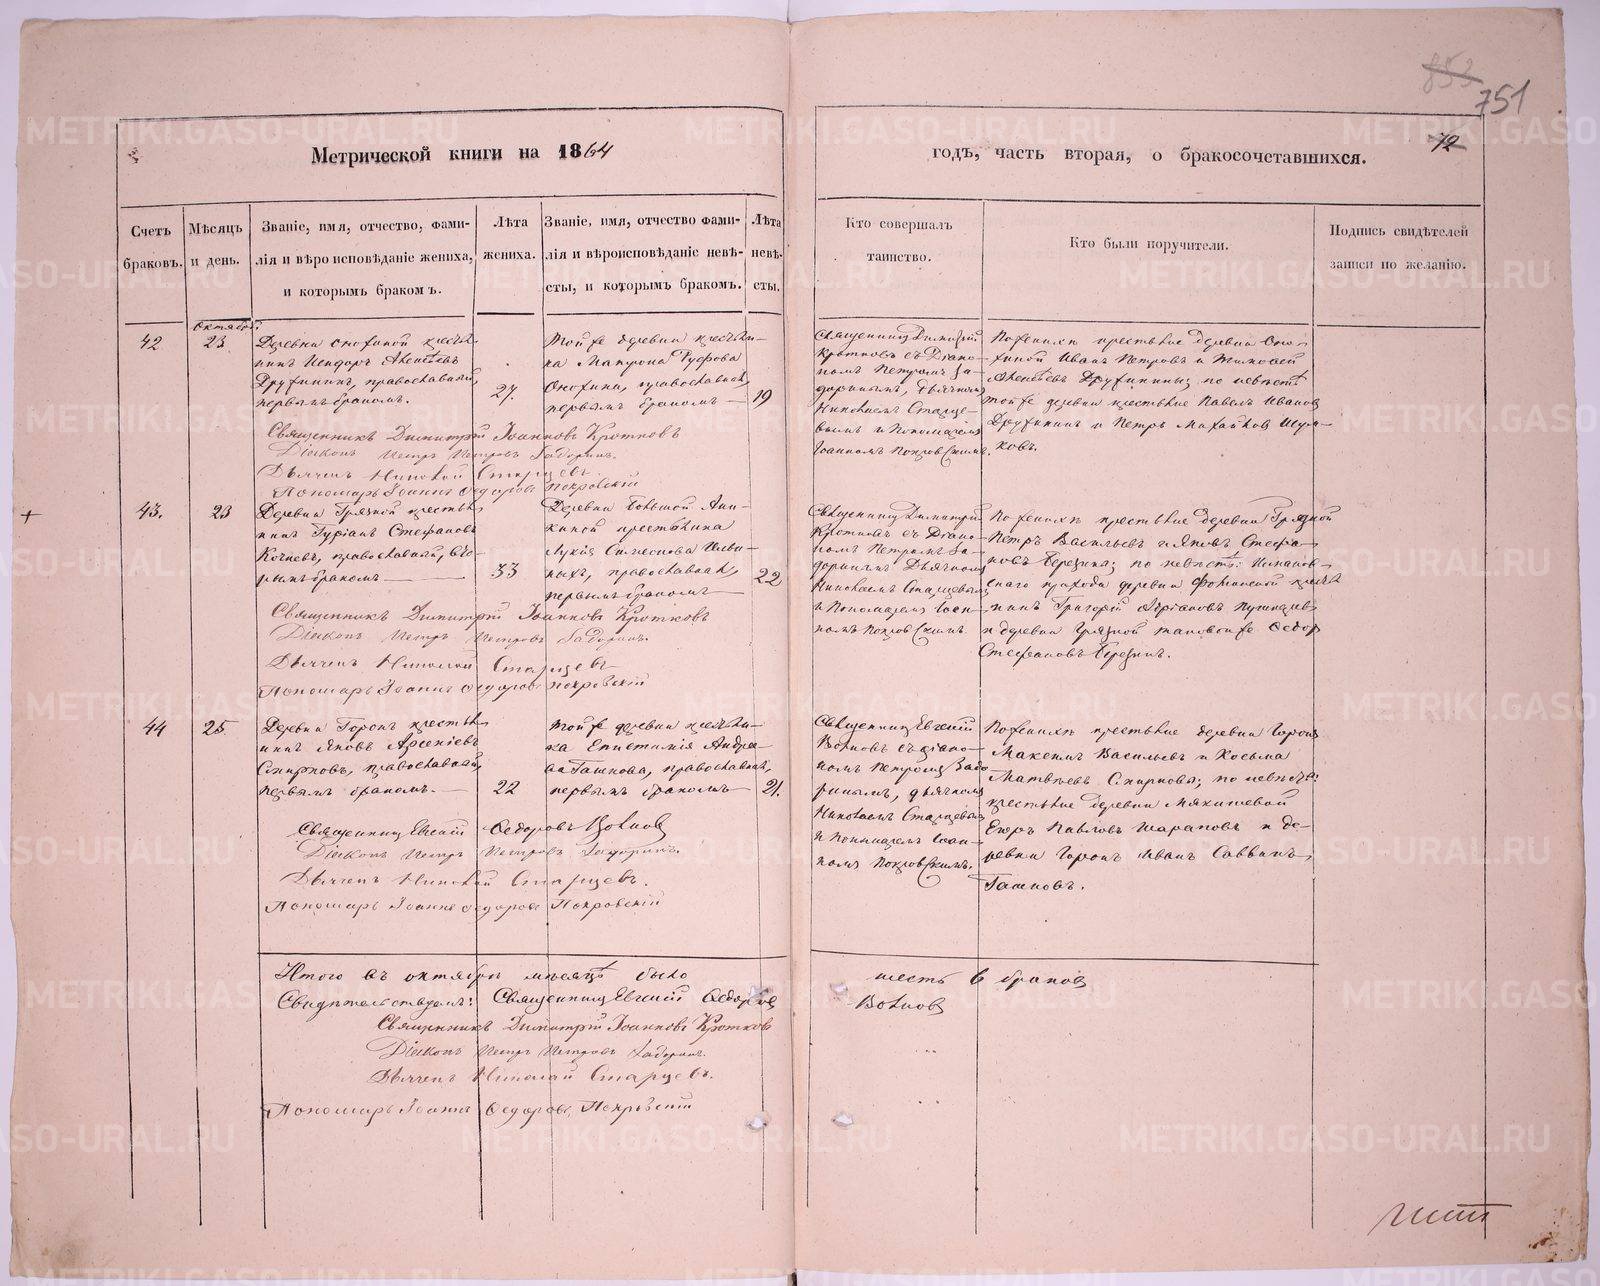 853
751
72
Метрической книги на 1864
годъ, часть вторая, о бракосочетавшихся.
Счетъ браковъ.
Мѣсяцъ и день.
Званіе, имя, отчество, фами-
лія и вѣроисповѣданіе жениха,
и которымъ бракомъ.
Лѣта
жениха.
Званіе, имя, отчество фами-
лія и вѣроисповѣданіе невѣ-
сты, и которымъ бракомъ.
Лѣта
невѣ-
сты.
Кто совершалъ
таинство.
Кто были поручители.
Подпись свидѣтелей
записи по желанію.
Октябрь
42
23
Деревни
нинъ
Дружининъ, православный,
первымъ бракомъ.
27.
Той же деревни крестьян-
ка Матрона
православная,
первымъ бракомъ
19
Священникъ Димитрій
Кротковъ съ Діако-
номъ Петромъ За-
доринымъ, дьячкомъ
Николаемъ Старце-
вымъ и Пономаремъ
Іоанномъ Покровскимъ.
По женихѣ крестьяне деревни
Иванъ Петровъ и
Дружинины; по невѣстѣ
той же деревни крестьяне Павелъ Ивановъ
Дружининъ и Петръ
Священникъ Димитрій Іоанновъ Кротковъ
Діаконъ Петръ Петровъ Задоринъ.
Дьячекъ Николай Старцевъ.
Пономарь Іоаннъ Федоровъ Покровскій
43.
23
Деревни Грязной крестья-
нинъ Гуріанъ Стефановъ
православный, вто-
рымъ бракомъ
33
Деревни Большой
крестьянина
православная,
первымъ бракомъ
22
Священникъ Димитрій
Кротковъ съ Діако-
номъ Петромъ За-
доринымъ Дьячкомъ
Николаемъ Старцевымъ
и Пономаремъ Іоан-
номъ Покровскимъ.
По женихѣ крестьяне деревни Грязной
Петръ Васильевъ и Яковъ Стефа-
новъ Березины; по невѣстѣ:
прихода деревни
нинъ Григорій
и деревни Грязной таковой же Федоръ
Стефановъ Березинъ.
Священникъ Димитрій Іоанновъ Кротковъ
Діаконъ Петръ Петровъ Задоринъ.
Дьячекъ Николай Старцевъ
Пономарь Іоаннъ Федоровъ Покровскій
44
25
Деревни Горокъ крестья-
нинъ Яковъ Арсеніевъ
Смирновъ, православный,
первымъ бракомъ.
22
Той же деревни крестьян-
ка Епистимія Андре-
ева православная,
первымъ бракомъ
21.
Священникъ Евгеній
съ діако-
номъ Петромъ Задо-
ринымъ, дьячкомъ
Николаемъ Старцевымъ
и Пономаремъ Іоан-
номъ Покровскимъ.
По женихѣ крестьяне деревни Горокъ
Максимъ Васильевъ и Косьма
Матвѣевъ Смирновы; по невѣстѣ:
крестьяне деревни Мякишевой
Егоръ Павловъ Шараповъ и де-
ревни Горокъ Иванъ
Священникъ Евгеній Федоровъ
Діаконъ Петръ Петровъ Задоринъ.
Дьячекъ Николай Старцевъ.
Пономарь Іоаннъ Федоровъ Покровскій
Итого въ октябрѣ мѣсяцѣ было
шесть 6 браковъ
Свидѣтельствуемъ: Священникъ Евгеній Федоровъ
Священникъ Димитрій Іоанновъ Кротковъ
Діаконъ Петръ Петровъ Задоринъ.
Дьячекъ Николай Старцевъ.
Пономарь Іоаннъ Федоровъ Покровскій
METRIKI.GASO-URAL.RU